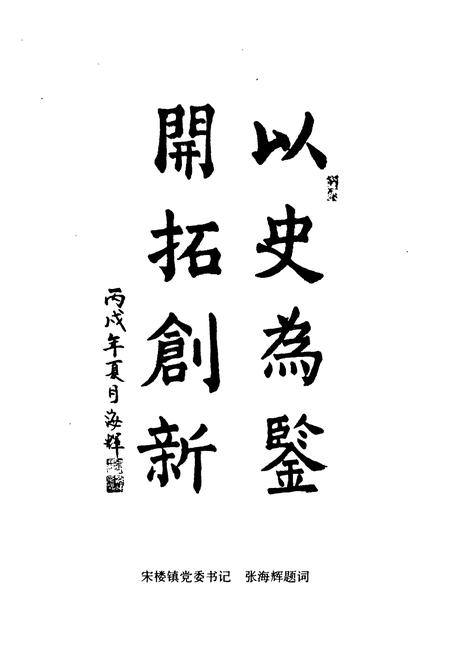 以史為鋻
開拓創新
丙戌年夏月海輝
宋楼镇党委书记 张海辉题词